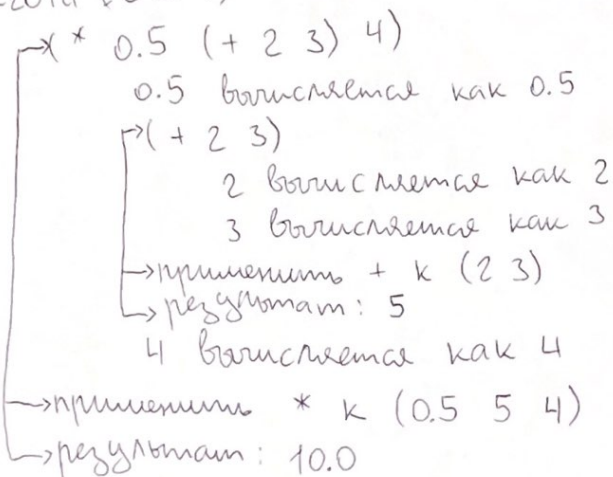 (* 0.5 (+ 2 3) 4)
0.5 вычисляется как 0.5
(+ 2 3)
2 вычисляется как 2
3 вычисляется как 3
применить + к (2 3)
результат: 5
4 вычисляется как 4
применить * к (0.5 5 4)
результат: 10.0